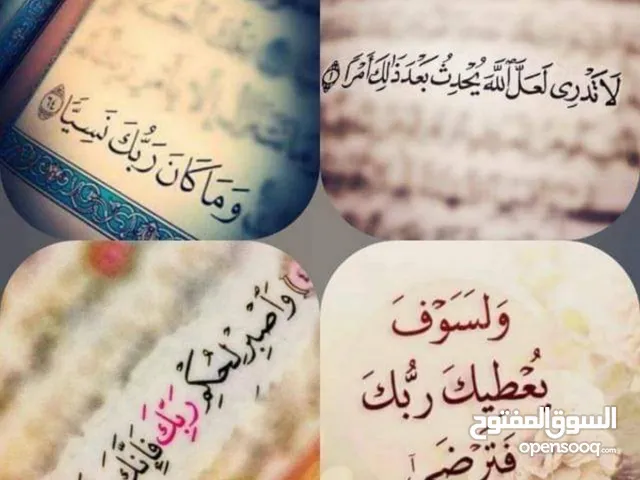 لَا تَدْرِى لَعَلَّ ٱللَّهَ يُحْدِثُ بَعْدَ ذَٰلِكَ أَمْرًا ١
وَمَا كَانَ رَبُّكَ نَسِيًّا ٦٤
وَلَسَوْفَ
يُعْطِيكَ رَبُّكَ
فَتَرْضَىٰٓ
وَٱصْبِرْ لِحُكْمِ رَبِّكَ فَإِنَّكَ
السوق المفتوح
opensooq.com